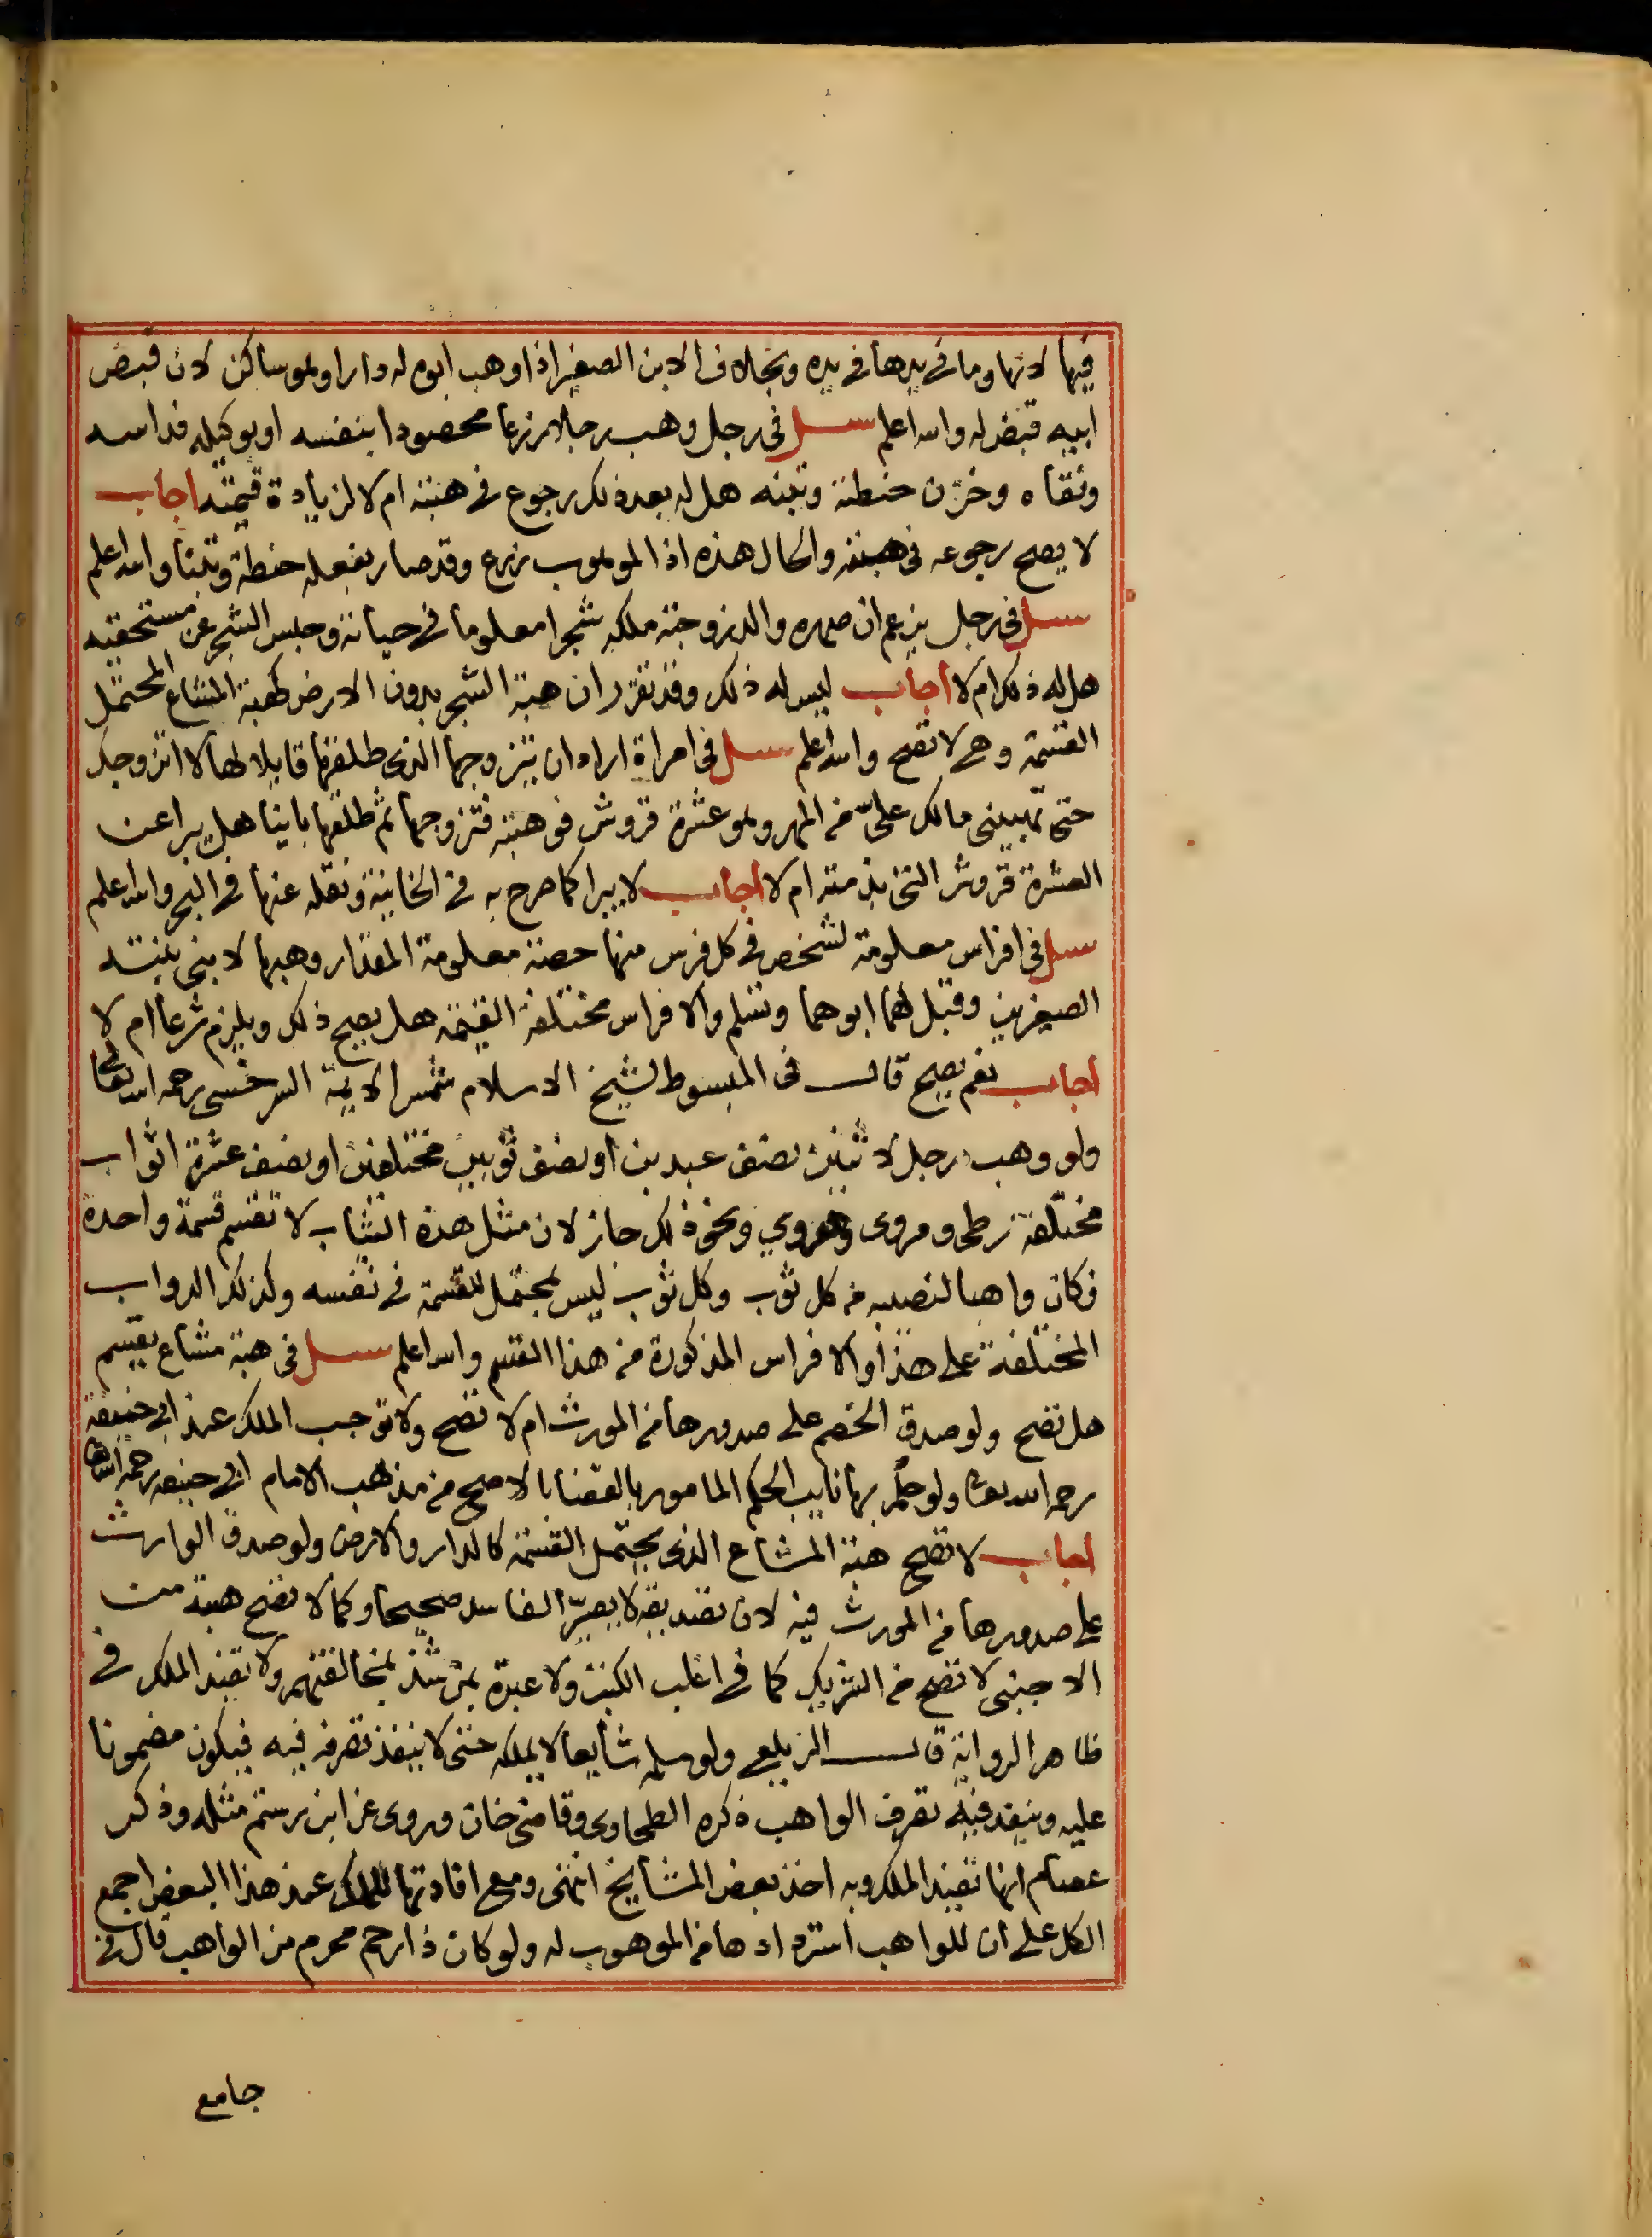 فيها لانها وما في يدها في يده وبخلاف الابن الصغير اذا وهب ابوه له دارا وهو ساكن لان قبض
ابيه قبض له والله اعلم سئل في رجل وهب رجلا زرعا محصودا بنفسه او بوكيله فداسه
ونقاه وخزن حنطته وتبنه هل له بعد ذلك رجوع في هبته ام لا لزيادة قيمته اجاب
لا يصح رجوعه في هبته والحال هذه اذ الموهوب زرع وقد صار بفعله حنطة وتبنا والله اعلم
سئل في رجل يزعم ان صهره والد زوجته ملكه شجرا معلوما في حياته وحبس الشجر عن مستحقيه
هل له ذلك ام لا اجاب ليس له ذلك وقد تقرر ان هبة الشجر بدون الارض كهبة المشاع المحتمل
القسمة وهي لا تصح والله اعلم سئل في امراة اراد ان يتزوجها الذي طلقها قايلا لها لا اتزوجك
حتى تهبيني مالك علي من المهر وهو عشرة قروش فوهبته فتزوجها ثم طلقها باينا هل يبرا عن
العشرة قروش التي بذمته ام لا اجاب لا يبرا كما صرح به في الخانية ونقله عنها في البحر والله اعلم
سئل في افراس معلومة لشخص في كل فرس منها حصة معلومة المقدار وهبها لابني بنته
الصغيرين وقبل لهما ابوهما وتسلم والافراس مختلفة القيمة هل يصح ذلك ويلزم شرعا ام لا
اجاب نعم يصح قال في المبسوط لشيخ الاسلام شمس الايمة السرخسي رحمه الله تعالى
ولو وهب رجل لاثنين نصف عبدين او نصف ثوبين مختلفين او نصف عشرة اثواب
مختلفة زطي ومروي وهروي ونحو ذلك جاز لان مثل هذه الثياب لا تقسم قسمة واحدة
فكان واهبا لنصيبه من كل ثوب وكل ثوب ليس بمحتمل للقسمة في نفسه وكذلك الدواب
المختلفة على هذا والافراس المذكورة من هذا القسم والله اعلم سئل في هبة مشاع يقسم
هل تصح ولو صدق الخصم على صدورها من المورث ام لا تصح ولا توجب الملك عند ابي حنيفة
رحمه الله تعالى ولو حكم بها نايب الحكم المامور بالقضا بالاصح من مذهب الامام ابي حنيفة رحمه الله تعالى
اجاب لا تصح هبة المشاع الذي يحتمل القسمة كالدار والارض ولو صدق الوارث
على صدورها من المورث فيه لان تصديقه لا يصير الفاسد صحيحا وكما لا تصح هبته من
الاجنبي لا تصح من الشريك كما في اغلب الكتب ولا عبرة بمن شذ بمخالفتهم ولا تفيد الملك في
ظاهر الرواية قال الزيلعي ولو سلمه شايعا لا يملكه حتى لا ينفذ تصرفه فيه فيكون مضمونا
عليه وينفذ فيه تصرف الواهب ذكره الطحاوي وقاضي خان وروي عن ابن رستم مثله وذكر
عصام انها تفيد الملك وبه اخذ بعض المشايخ انتهى ومع افادتها للملك عند هذا البعض اجمع
الكل على ان للواهب استردادها من الموهوب له ولو كان ذا رحم محرم من الواهب قال في
جامع